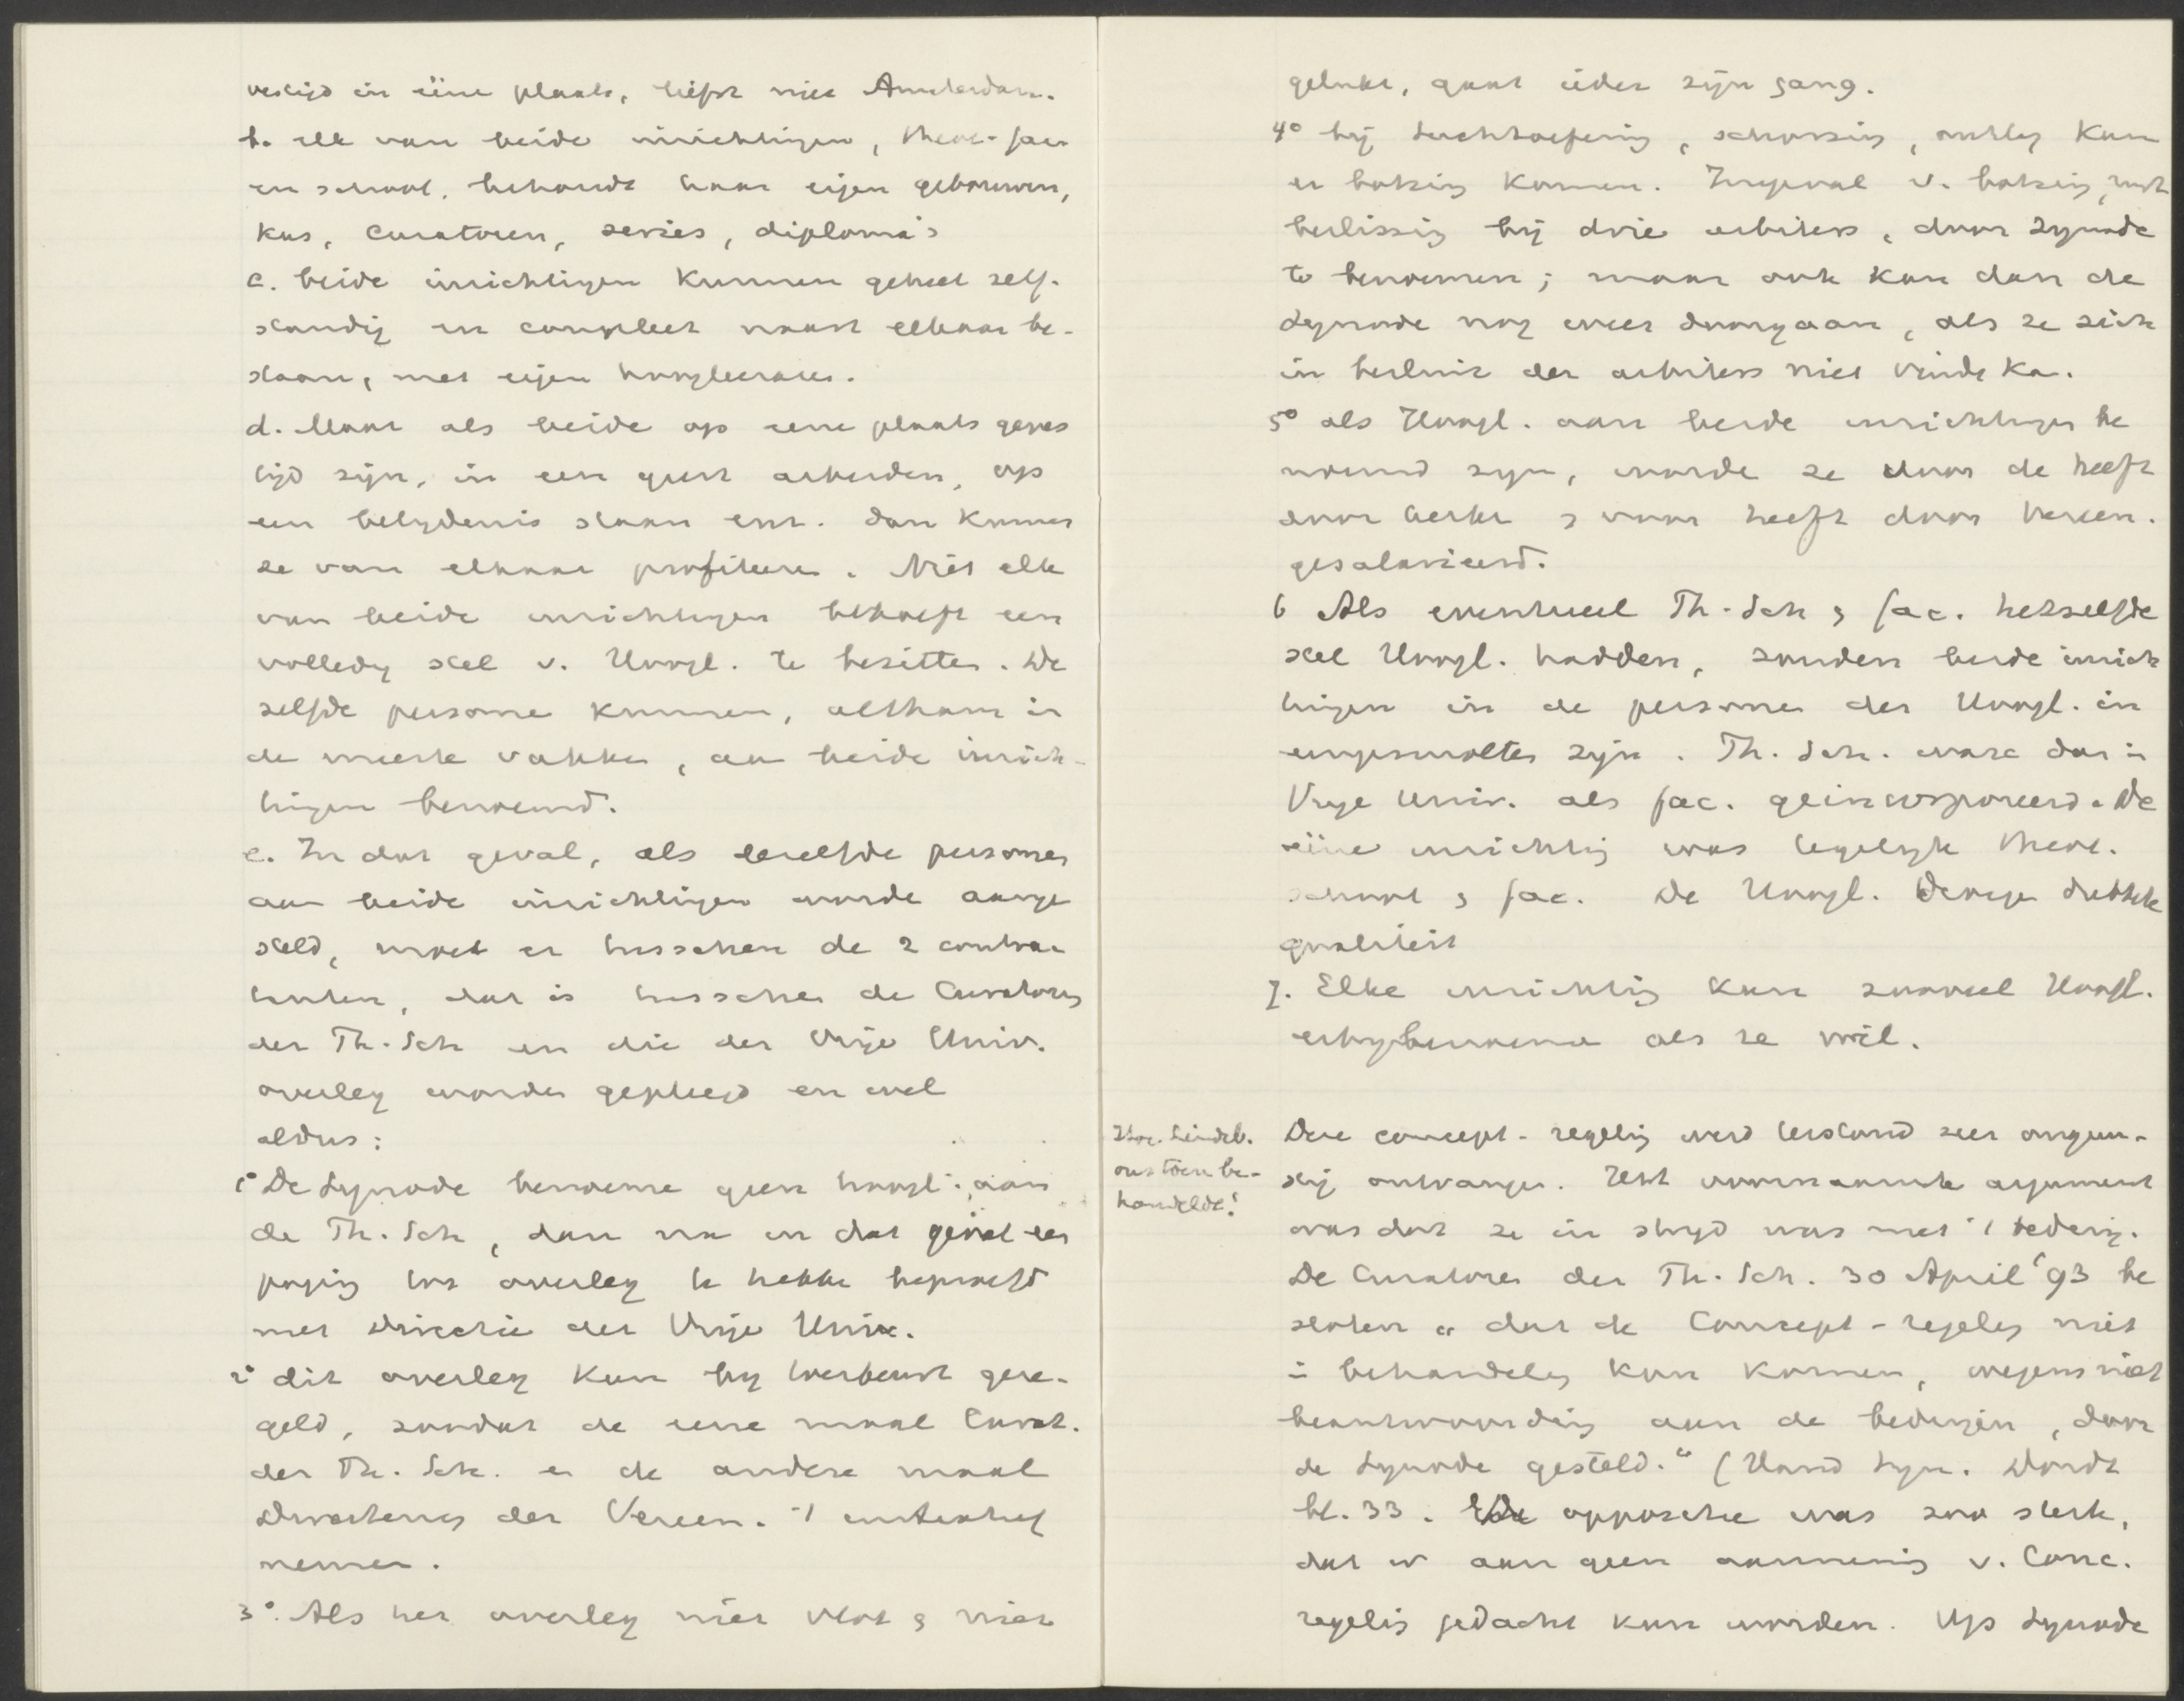 vestigd in ééne plaats, liefst niet Amsterdam.
b. elk van beide inrichtingen, theol. fac.
en school, behoudt haar eigen gebouwen,
kas, curatoren, series, diploma's
c. beide inrichtingen kunnen geheel zelf-
standig en compleet naast elkaar be-
staan, met eigen hoogleeraren.
d. Maar als beide op eene plaats geves
tigd zijn, in een geest arbeiden, op
een belydenis staan enz. dan kunnen
ze van elkaar profiteeren. Niet elk
van beide inrichtingen behoeft een
volledig stel v. Hoogl. te bezitten. De
zelfde personen kunnen, althans in
de meeste vakken, aan beide inrich-
tingen benoemd.
e. In dat geval, als dezelfde personen
aan beide inrichtingen worde aange
steld, moet er tusschen de 2 contrac
tanten, dat is tusschen de Curatoren
der Th. Sch en die der Vrije Univ.
overleg worden gepleegd en wel
aldus:
1° De Synode benoeme geen hoogl. aan
de Th. Sch, dan na in dat geval een
poging tot overleg te hebben beproefd
met Directie der Vrije Univ.
2° dit overleg kan by toerbeurt gere-
geld, zoodat de eene maal Curat.
der Th. Sch. en de andere maal
Directeuren der Vereen. 't initiatief
nemen.
3°. Als het overleg niet vlot & niet
gelukt, gaat ieder zijn gang.
4° bij tuchtoefening, schorsing, ontslag kan
er botsing komen. Ingeval v. botsing, rust
beslissing bij drie arbiters, door Synode
te benoemen; maar ook kan dan de
Synode nog weer doorgaan, als ze zich
in besluit der arbiters niet vinde ka.
5° als Hoogl. aan beide inrichtingen be
noemd zyn, worde ze voor de helft
door kerke & voor helft door Vereen.
gesalarieerd.
6 Als eventueel Th. Sch & fac. hetzelfde
stel Hoogl. hadden, zouden beide inrich
tingen in de personen der Hoogl. in
eengesmolten zijn. Th. Sch. ware dan in
Vrye Univ. als fac. geincorporeerd. De
eéne inrichting was tegelijk theol.
school & fac. De Hoogl. droegen dubbele
qualiteit
7. Elke inrichting kan zooveel Hoogl.
erbybenoeme als ze wil.
Deze concept-regeling werd terstond zeer ongun-
stig ontvangen. Het voornaamste argument
was dat ze in stryd was met 't beding.
De Curatoren der Th. Sch. 30 April '93 be
sloten „dat de Concept-regeling niet
in behandeling kan komen, wegens niet
beantwoording aan de bedingen, door
de Synode gesteld." (Hand Syn. Dordt
bl. 33. De oppositie was zoo sterk,
dat er aan geen aanneming v. Conc.
regeling gedacht kan worden. Op Synode
Lindeb.
ons toen be-
handelde!